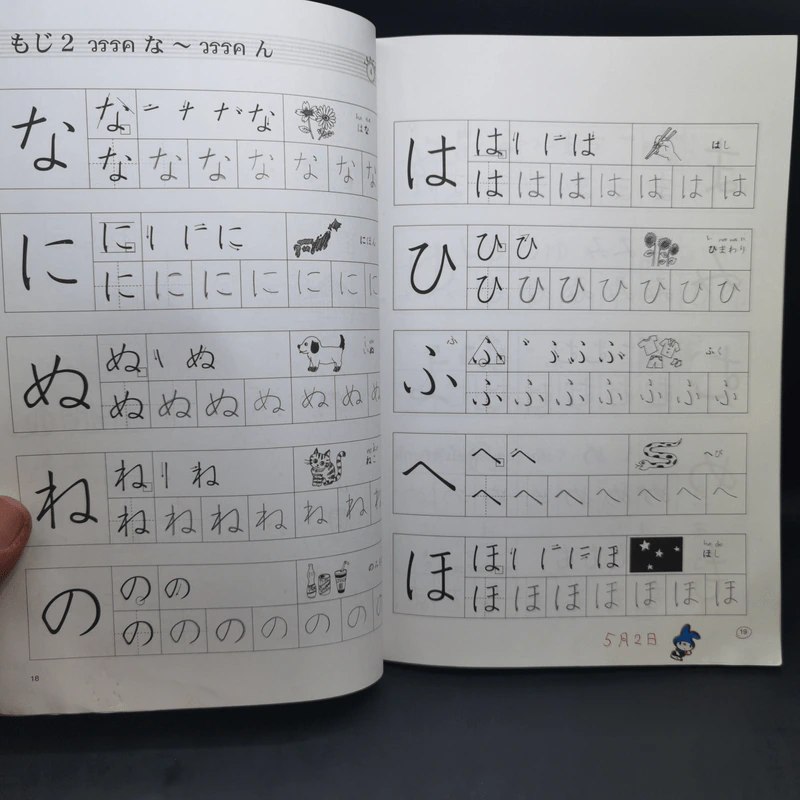 もじ 2 วรรค な ～ วรรค ん
な な な はな
な な な な な な な
に に に にほん
に に に に に に に
ぬ ぬ ぬ いぬ
ぬ ぬ ぬ ぬ ぬ ぬ ぬ
ね ね ね ねこ
ね ね ね ね ね ね ね
の の の
の の の の の の の
18
は は は はし
は は は は は は は
ひ ひ ひ ひまわり
ひ ひ ひ ひ ひ ひ ひ
ふ ふ ふ ふく
ふ ふ ふ ふ ふ ふ ふ
へ へ へ へび
へ へ へ へ へ へ へ
ほ ほ ほ ほし
ほ ほ ほ ほ ほ ほ ほ
5月2日
19